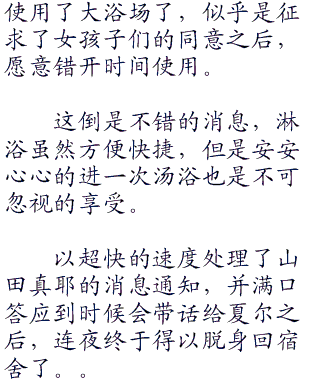 使用了大浴场了，似乎是征
求了女孩子们的同意之后，
愿意错开时间使用。
这倒是不错的消息，淋
浴虽然方便快捷，但是安安
心心的进一次汤浴也是不可
忽视的享受。
以超快的速度处理了山
田真耶的消息通知，并满口
答应到时候会带话给夏尔之
后，连夜终于得以脱身回宿
舍了。。